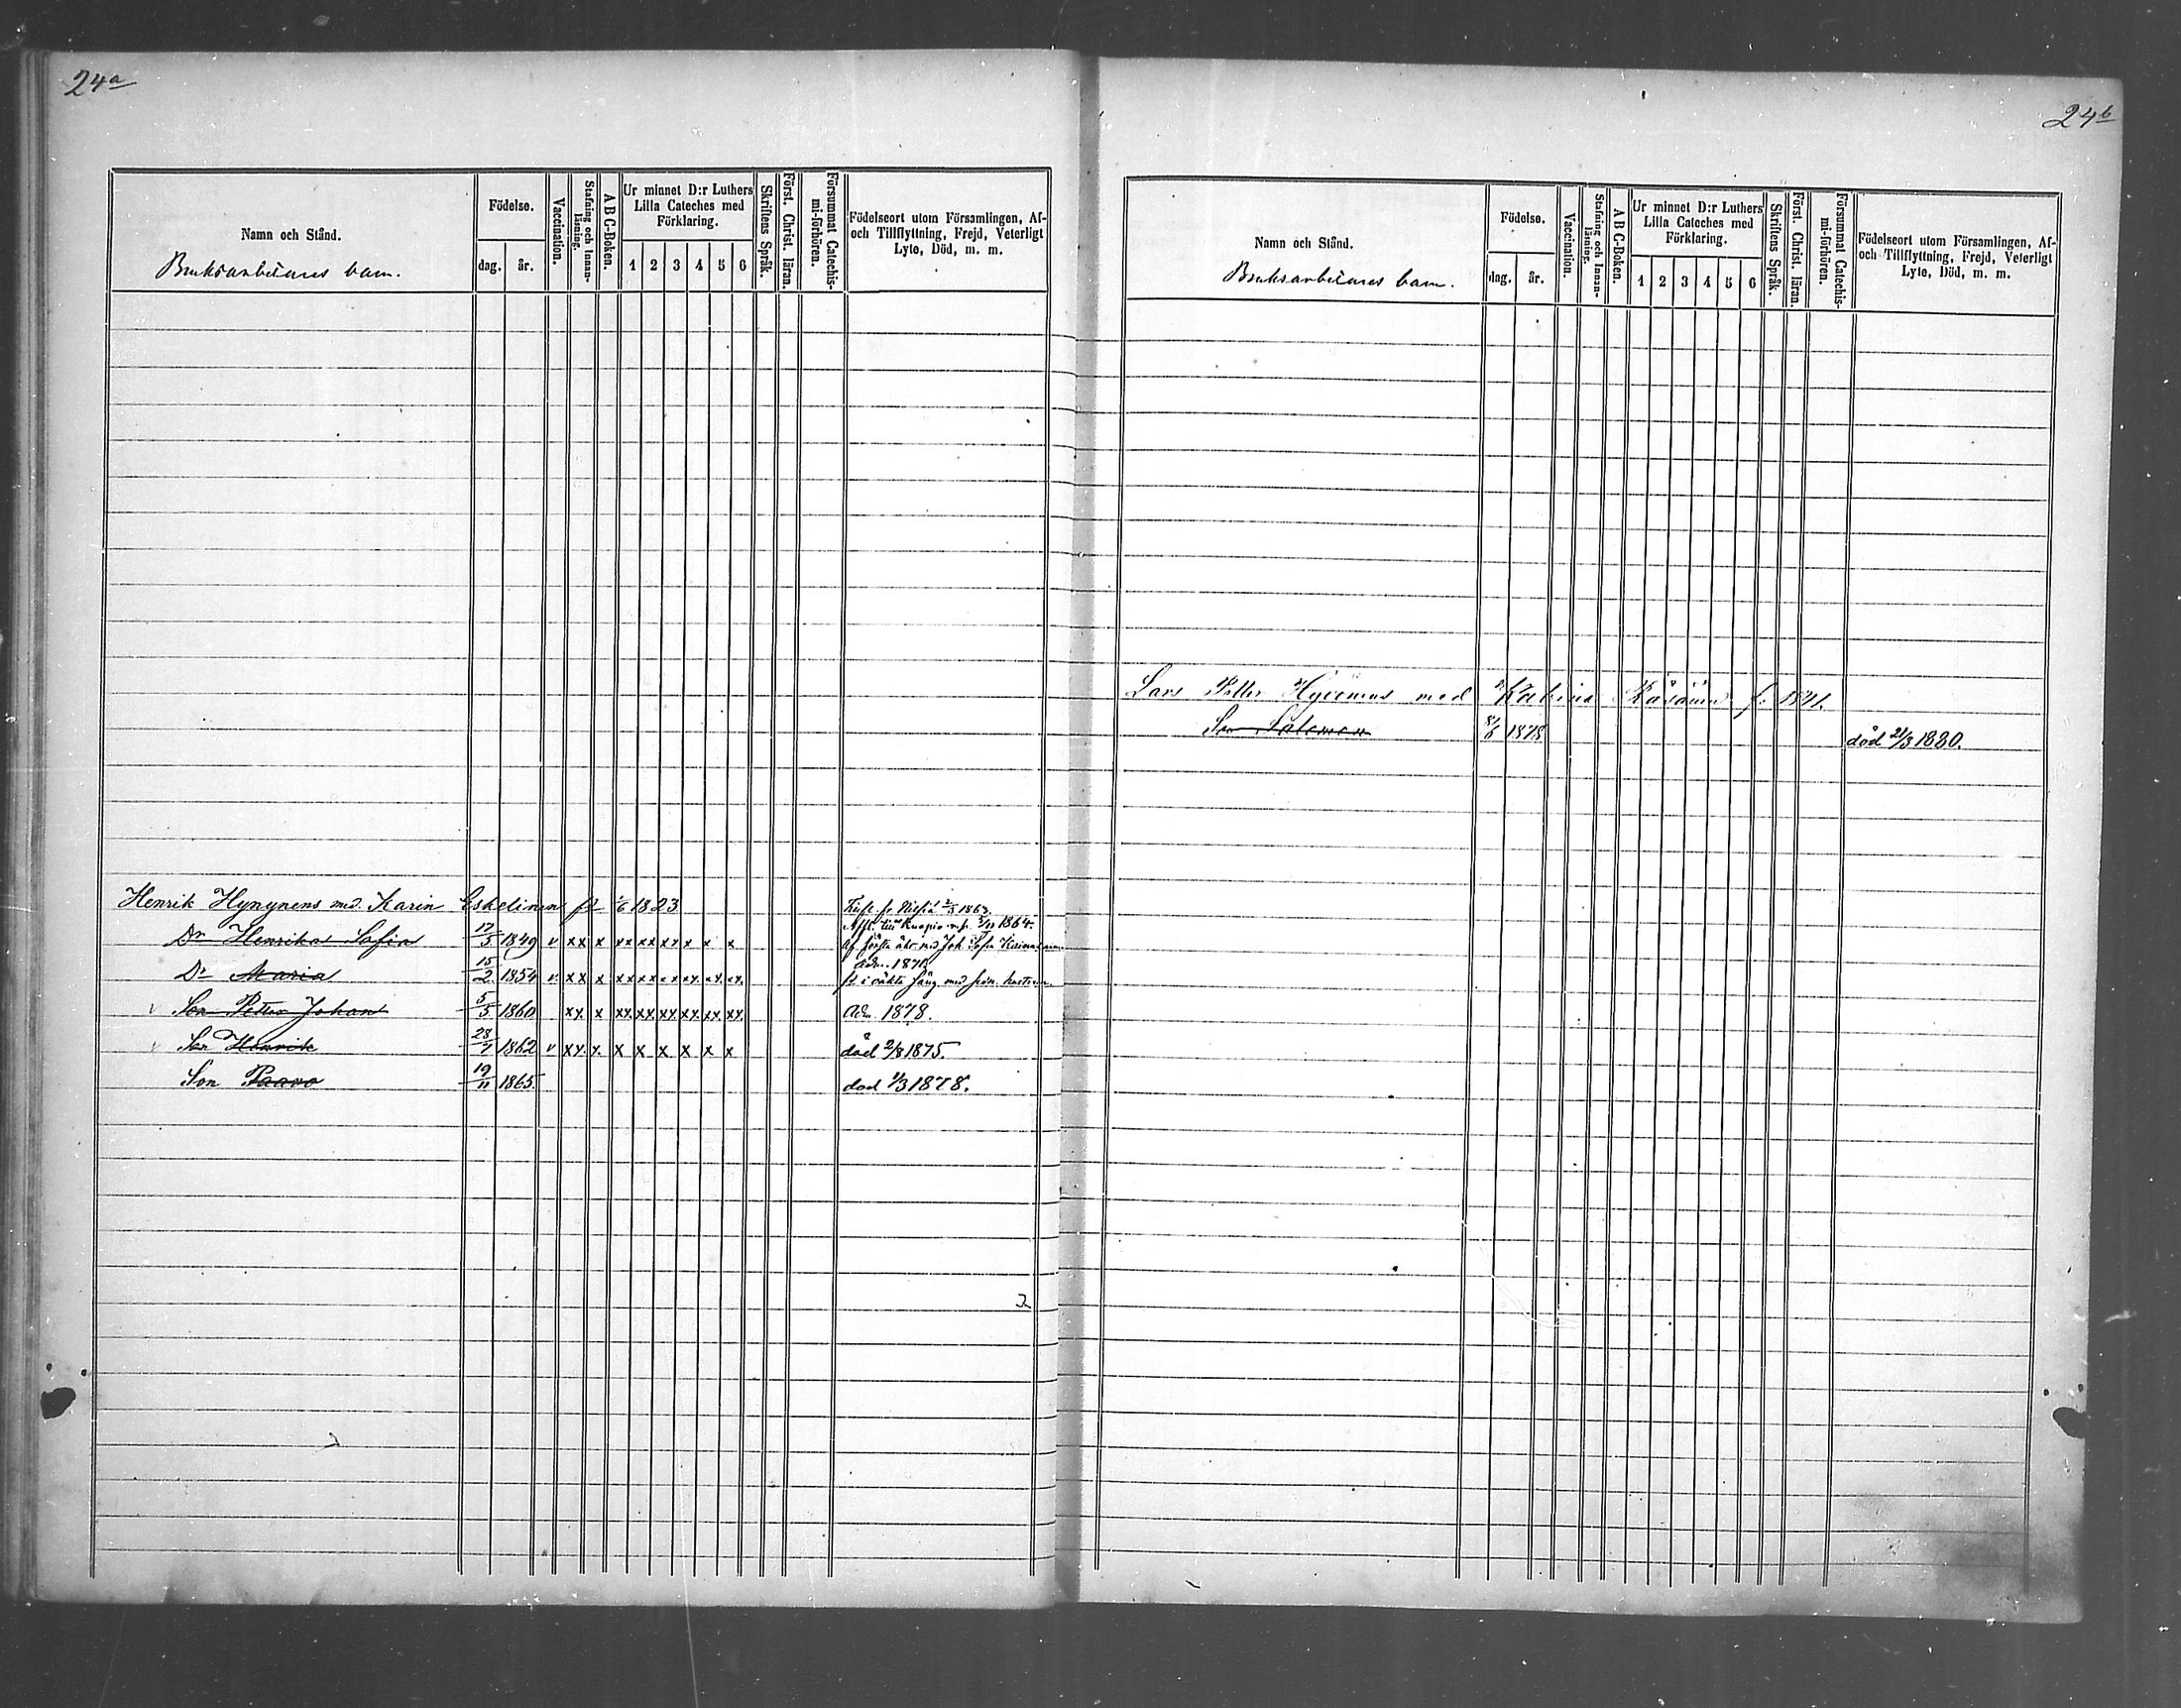 24a
Namn och Stånd.
Bruksarbetares barn.
Födelse.
dag.
år.
Vaccination.
Stafning och Innan-
läsning.
ABC-Boken.
Ur minnet D:r Luthers
Lilla Cateches med
Förklaring.
1 2 3 4 5 6
Skriftens Språk.
Först. Christ. läran.
Försummat Catechis-
mi-förhören.
Födelseort utom Församlingen, Af-
och Tillflyttning, Frejd, Veterligt
Lyte, Död, m. m.
Henrik Hynynens med Karin Eskelinen 1823
1863.
till Kuopio 1864.
Dr Henrika Sofia 17/5 1849 v xx x xx xx xx x x x
Dr Maria 15/2 1854 v. xx x xx xx xx xx xx xx
v Son Petter Johan 5/5 1860 xx x xx xx xx xx xx xx Adm. 1878.
v Son Henrik 28/7 1862 v xx. x. x x x x x x död 2/8 1875.
Son Paavo 19/11 1865. död 1/3 1878.
24b
Namn och Stånd.
Bruksarbetares barn.
Födelse.
dag.
år.
Vaccination.
Stafning och Innan-
läsning.
ABC-Boken.
Ur minnet D:r Luthers
Lilla Cateches med
Förklaring.
1 2 3 4 5 6
Skriftens Språk.
Först. Christ. läran.
Försummat Catechis-
mi-förhören.
Födelseort utom Församlingen, Af-
och Tillflyttning, Frejd, Veterligt
Lyte, Död, m. m.
Lars Petter med Räsänen f.
Son Salomon 1878 död 21/3 1880.